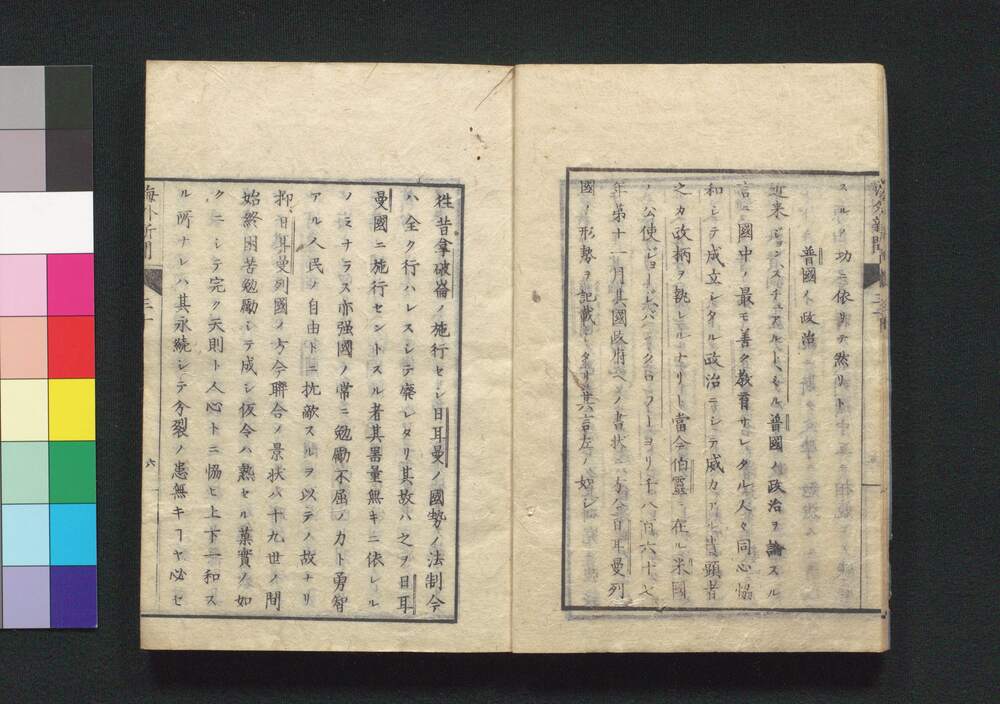 海外新聞
スルノ功ニ依リテ然リト
普國ノ政治
近来ジョンスチュアルトミル普國ノ政治ヲ論スル
言ニ國中ノ最モ善ク教育サレタル人々同心協
和シテ成立シタル政治ニシテ威力アル当頭者
之カ政柄ヲ執レルナリト當今伯靈ニ在ル米國
ノ公使ジョージバンクロフトヨリ千八百六十七
年第十一月其國政府ヘノ書状ニ方今日耳曼列
國ノ形勢ヲ記載シタリ其言左ノ如シ
徃昔拿破崙ノ施行セシ日耳曼ノ國勢ノ法制今
ハ全ク行ハレスシテ廃レタリ其故ハ之ヲ日耳
曼國ニ施行セントスル者其器量無キニ依レル
ノミナラス亦强國ノ常ニ勉勵不屈ノ力ト勇智
アル人民ノ自由トニ抗敵スルヲ以テノ故ナリ
抑日耳曼列國ノ方今聯合ノ景状ハ十九世ノ間
始終困苦勉勵シテ成シ仮令ハ熟セル菓實ノ如
クニシテ完ク天則ト人心トニ協ヒ上下一和ス
ル所ナレハ其永続シテ分裂ノ患無キヿヤ必セ
海外新聞
六